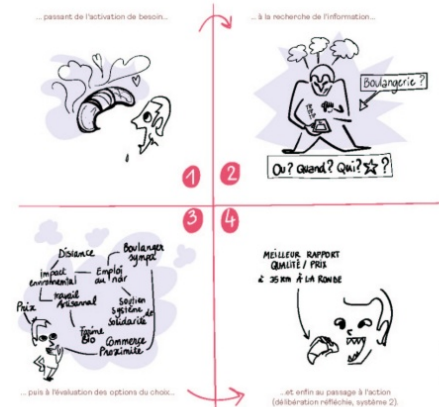 ... passant de l'activation de besoin...
... à la recherche de l'information...
Boulangerie ?
Ou? Quand? Qui? ☆ ?
1
2
3
4
Distance
Boulanger
sympa
Impact
environmental
Emploi
du
Travail
Artisanal
Prix
Soutien
Système de
Solidarité
Farine
Bio
Commerce
Proximité
MEILLEUR RAPPORT
QUALITÉ / PRIX
à 35 KM À LA RONDE
... puis à l'évaluation des options du choix...
...et enfin au passage à l'action
(délibération réfléchie, système 2).